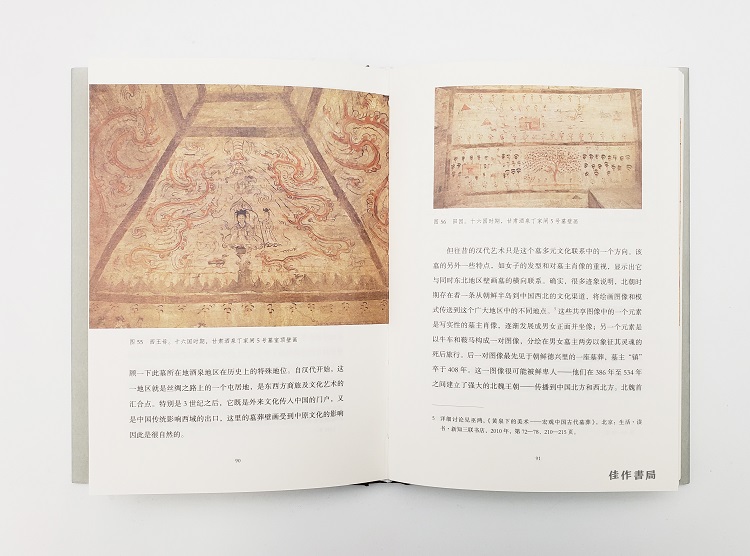 图 55 西王母，十六国时期，甘肃酒泉丁家闸 5 号墓室顶壁画
顾一下此墓所在地酒泉地区在历史上的特殊地位。自汉代开始，这
一地区就是丝绸之路上的一个屯居地，是东西方商旅及文化艺术的
汇合点。特别是 3 世纪之后，它既是外来文化传入中国的门户，又
是中国传统影响西域的出口，这里的墓葬壁画受到中原文化的影响
因此是很自然的。
90
图 56 田园，十六国时期，甘肃酒泉丁家闸 5 号墓壁画
但往昔的汉代艺术只是这个墓多元文化联系中的一个方向。该
墓的另外一些特点，如女子的发型和对墓主肖像的重视，显示出它
与同时东北地区壁画墓的横向联系。确实，很多迹象说明，北朝时
期存在着一条从朝鲜半岛到中国西北的文化渠道，将绘画图像和模
式传送到这个广大地区中的不同地点。5 这些共享图像中的一个元素
是写实性的墓主肖像，逐渐发展成男女正面并坐像；另一个元素是
以牛车和鞍马构成一对图像，分绘在男女墓主两旁以象征其灵魂的
死后旅行。后一对图像最先见于朝鲜德兴里的一座墓葬，墓主“镇”
卒于 408 年。这一图像很可能被鲜卑人——他们在 386 年至 534 年
之间建立了强大的北魏王朝——传播到中国北方和西北方。北魏首
5 详细讨论见巫鸿，《黄泉下的美术——宏观中国古代墓葬》，北京：生活·读
书·新知三联书店，2010 年，第 72—78，210—215 页。
91
佳作書局